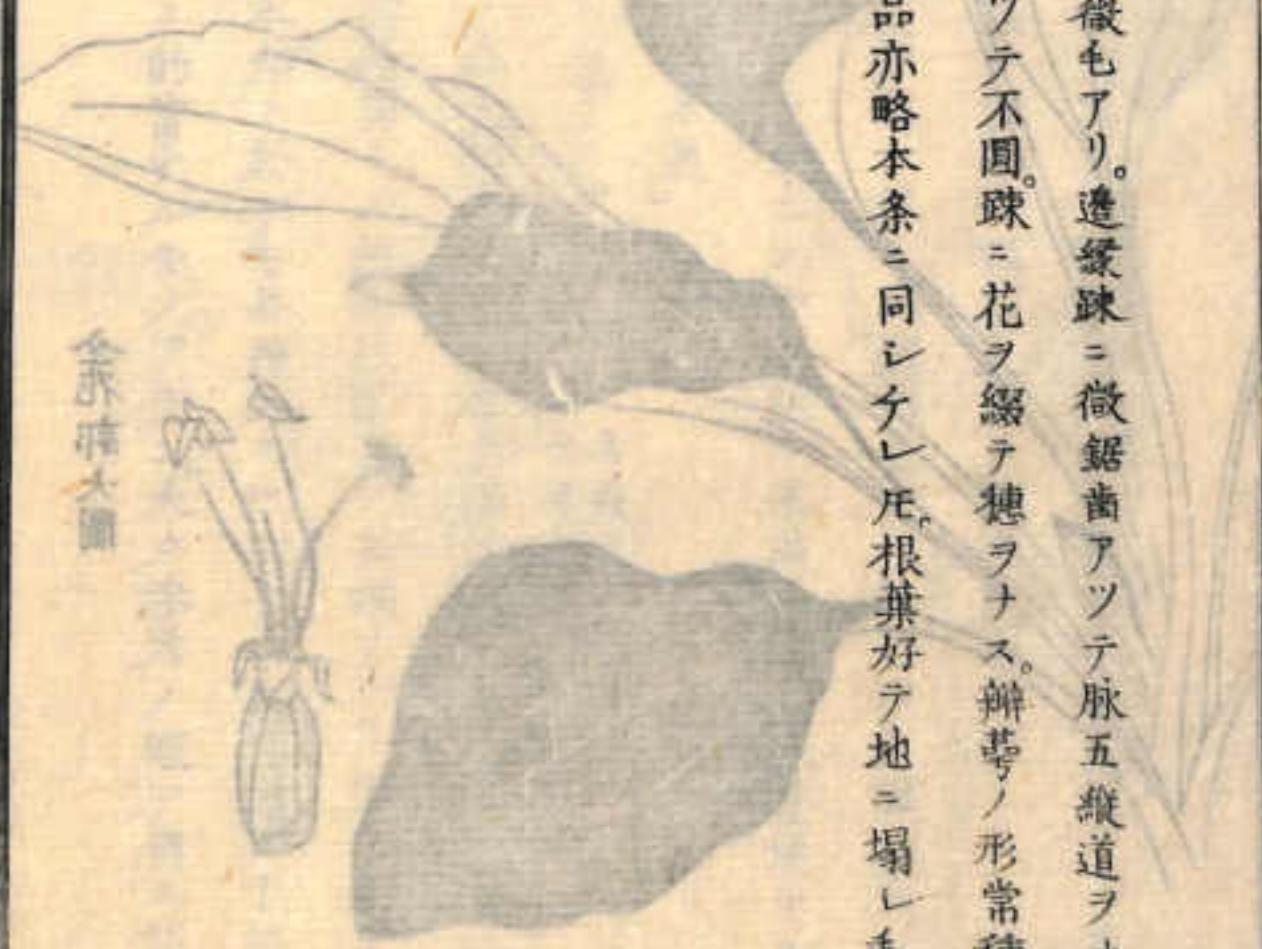 微毛アリ。邊緣踈ニ微鋸歯アツテ脉五縱道ヲ
ツテ不圓。踈ニ花ヲ綴テ穗ヲナス。瓣萼ノ形常種
品亦略本条ニ同シケレ𪜈。根葉好テ地ニ塌レ
全花郭大圖